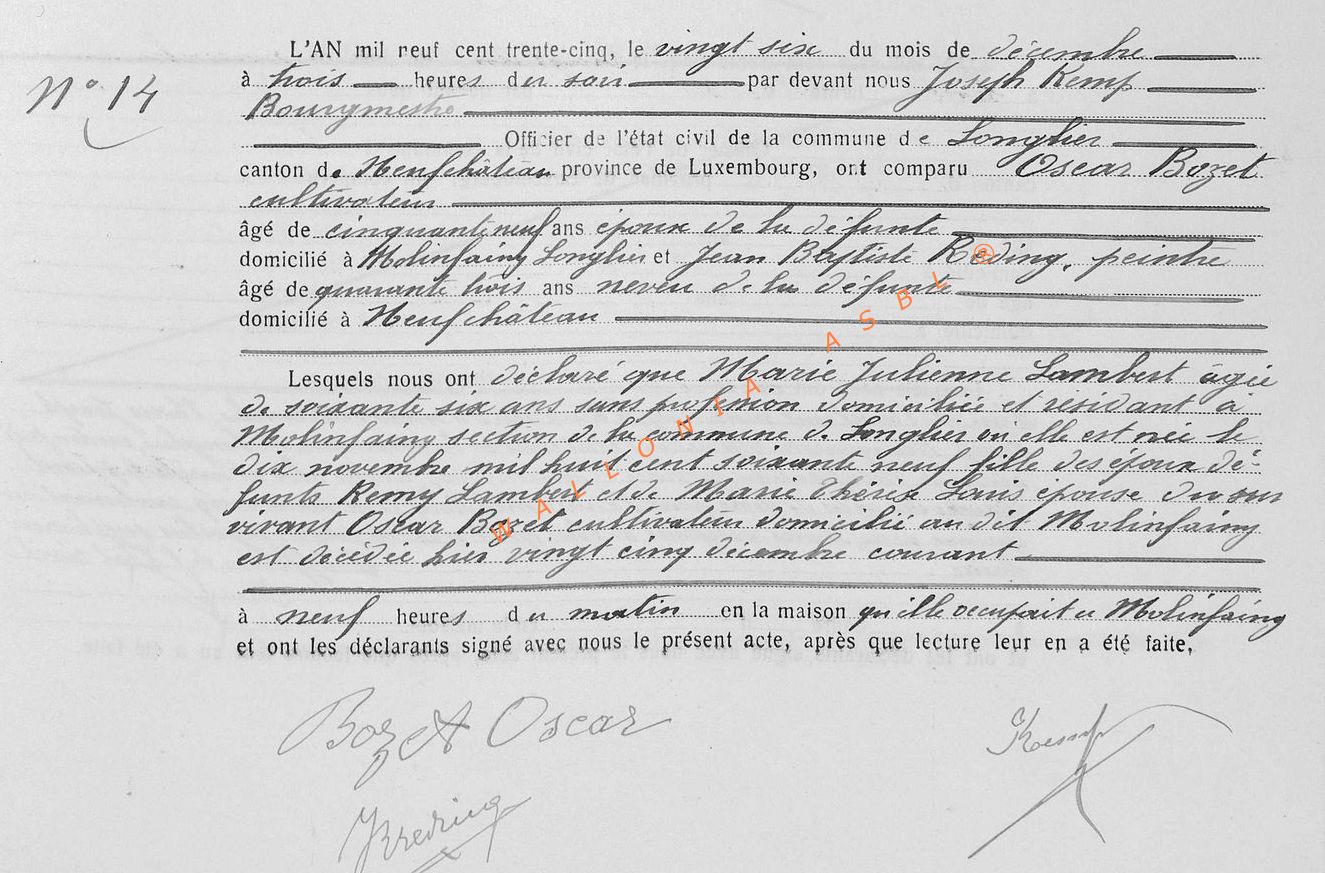 N° 14
L'AN mil neuf cent trente-cinq, le vingt six du mois de décembre
à trois heures du soir par devant nous Joseph Kemp
Bourgmestre
Officier de l'état civil de la commune de Longlier
canton de Neufchâteau province de Luxembourg, ont comparu Oscar Bozet
cultivateur
âgé de cinquante neuf ans époux de la défunte
domicilié à Molinfaing Longlier et Jean Baptiste Reding, peintre
âgé de quarante trois ans neveu de la défunte
domicilié à Neufchâteau
Lesquels nous ont déclaré que Marie Julienne Lambert âgée
de soixante six ans sans profession domiciliée et résidant à
Molinfaing section de la commune de Longlier où elle est née le
dix novembre mil huit cent soixante neuf fille des époux dé-
funts Remy Lambert et de Marie Thérèse Louis épouse du sur
vivant Oscar Bozet cultivateur domicilié au dit Molinfaing
est décédée hier vingt cinq décembre courant
à neuf heures du matin en la maison qu'elle occupait à Molinfaing
et ont les déclarants signé avec nous le présent acte, après que lecture leur en a été faite,
Bozet Oscar
Kemp
JBreding
WALLONIA ASBL ®